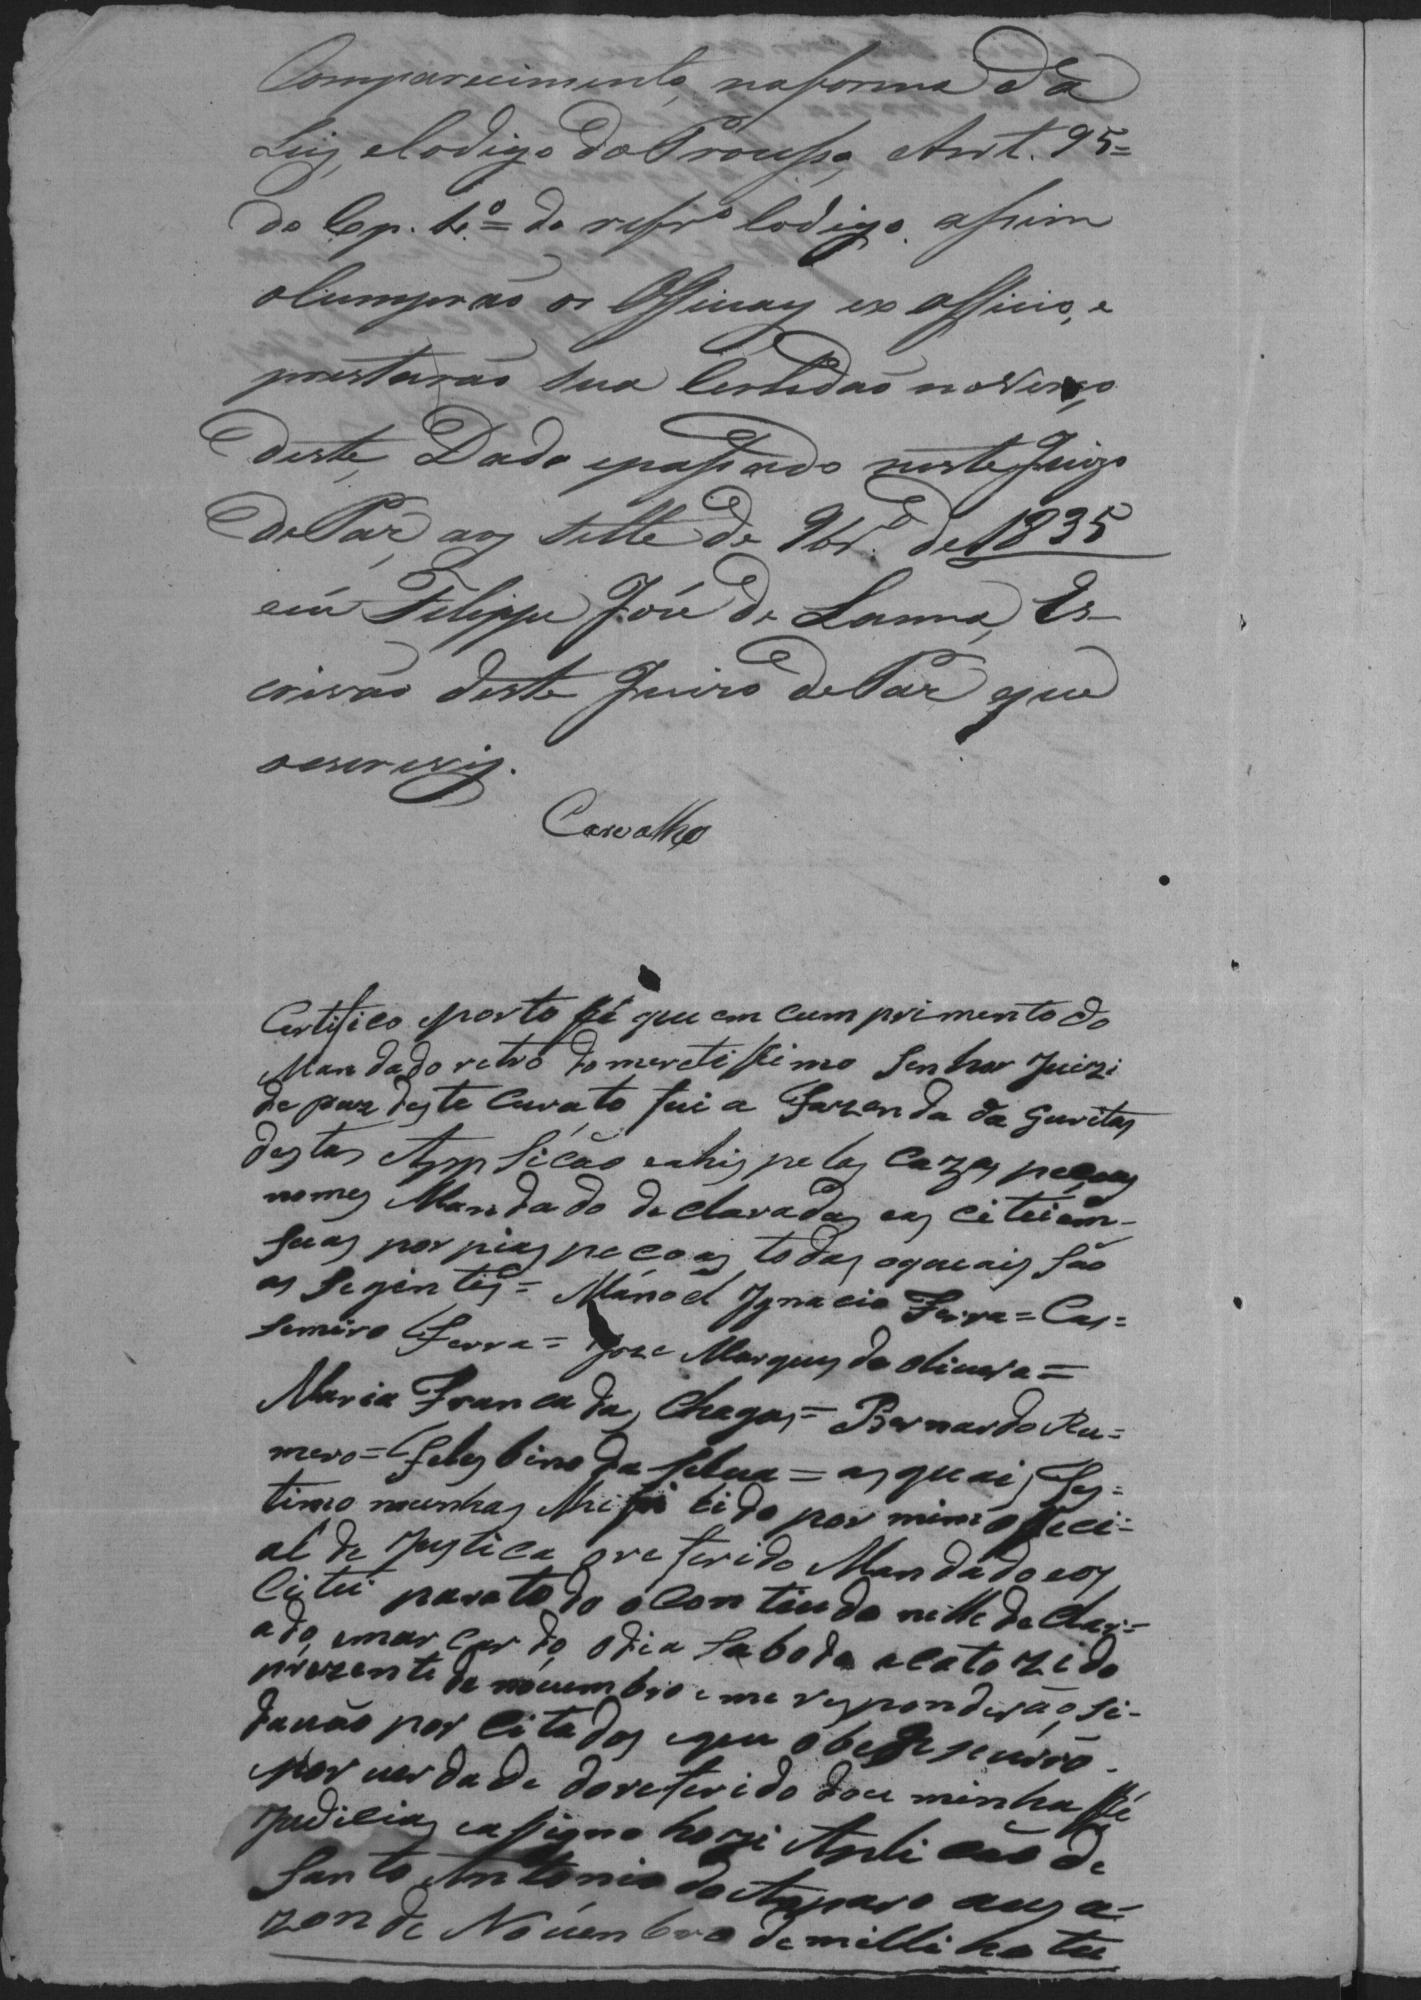 Comparecimento, na forma da
Ley, e Codigo do Proceso, Art. 95=
do Cp. 4.º= do refr.º Codigo. assim
o cumprão os Officiaes ex officio, e
prestarão sua Certidão no verso
deste, Dado e passado neste Juizo
de Paz, aos sette de 9br.º de 1835
eu Filippe José de Lanna, Es-
crivão deste Juizo de Paz que
o escrevy.
Carvalho
Certifico e porto fé que em cumprimento do
Mandado retro do meretissimo Senhor Juizi
de paz deste Curato fui a Fazenda da Guritas
destas Applicão e ahis pelas Cazas
nomes Mandado declaradas e as citei em-
suas porpias pecoas todas o quais são
as seginteis= Mánoel Ignacio Ferra= Cas=
semiro Ferra= Joze Marques de oliuera=
Maria Franca das Chagas= Bernardo Ru=
mero= Felesbino da Selua= as quais Tes=
timo munhas lhe foi lido por mim offeci=
al de Justica o referido Mandado e os
Citei para todo o Contiudo nelle declar=
ado, e marcando o dia Sabodo a catorze do
prezente de nouembro e me responderão, si-
dauão por Citados e que
por uerdade do referido dou minha fé
Judicial e assigno hoze Aplicão de
Santo Antonio do Amparo aus a=
zon de Nouenbro de mille hoite